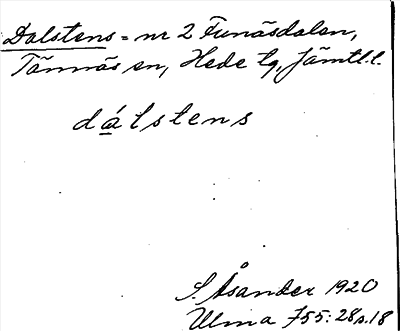 Dalstens = nr 2 Funäsdalen,
Tännäs sn, Hede tg, Jämtl.l.
dálstens
S. Åsander 1920
Ulma 755:28 s.18